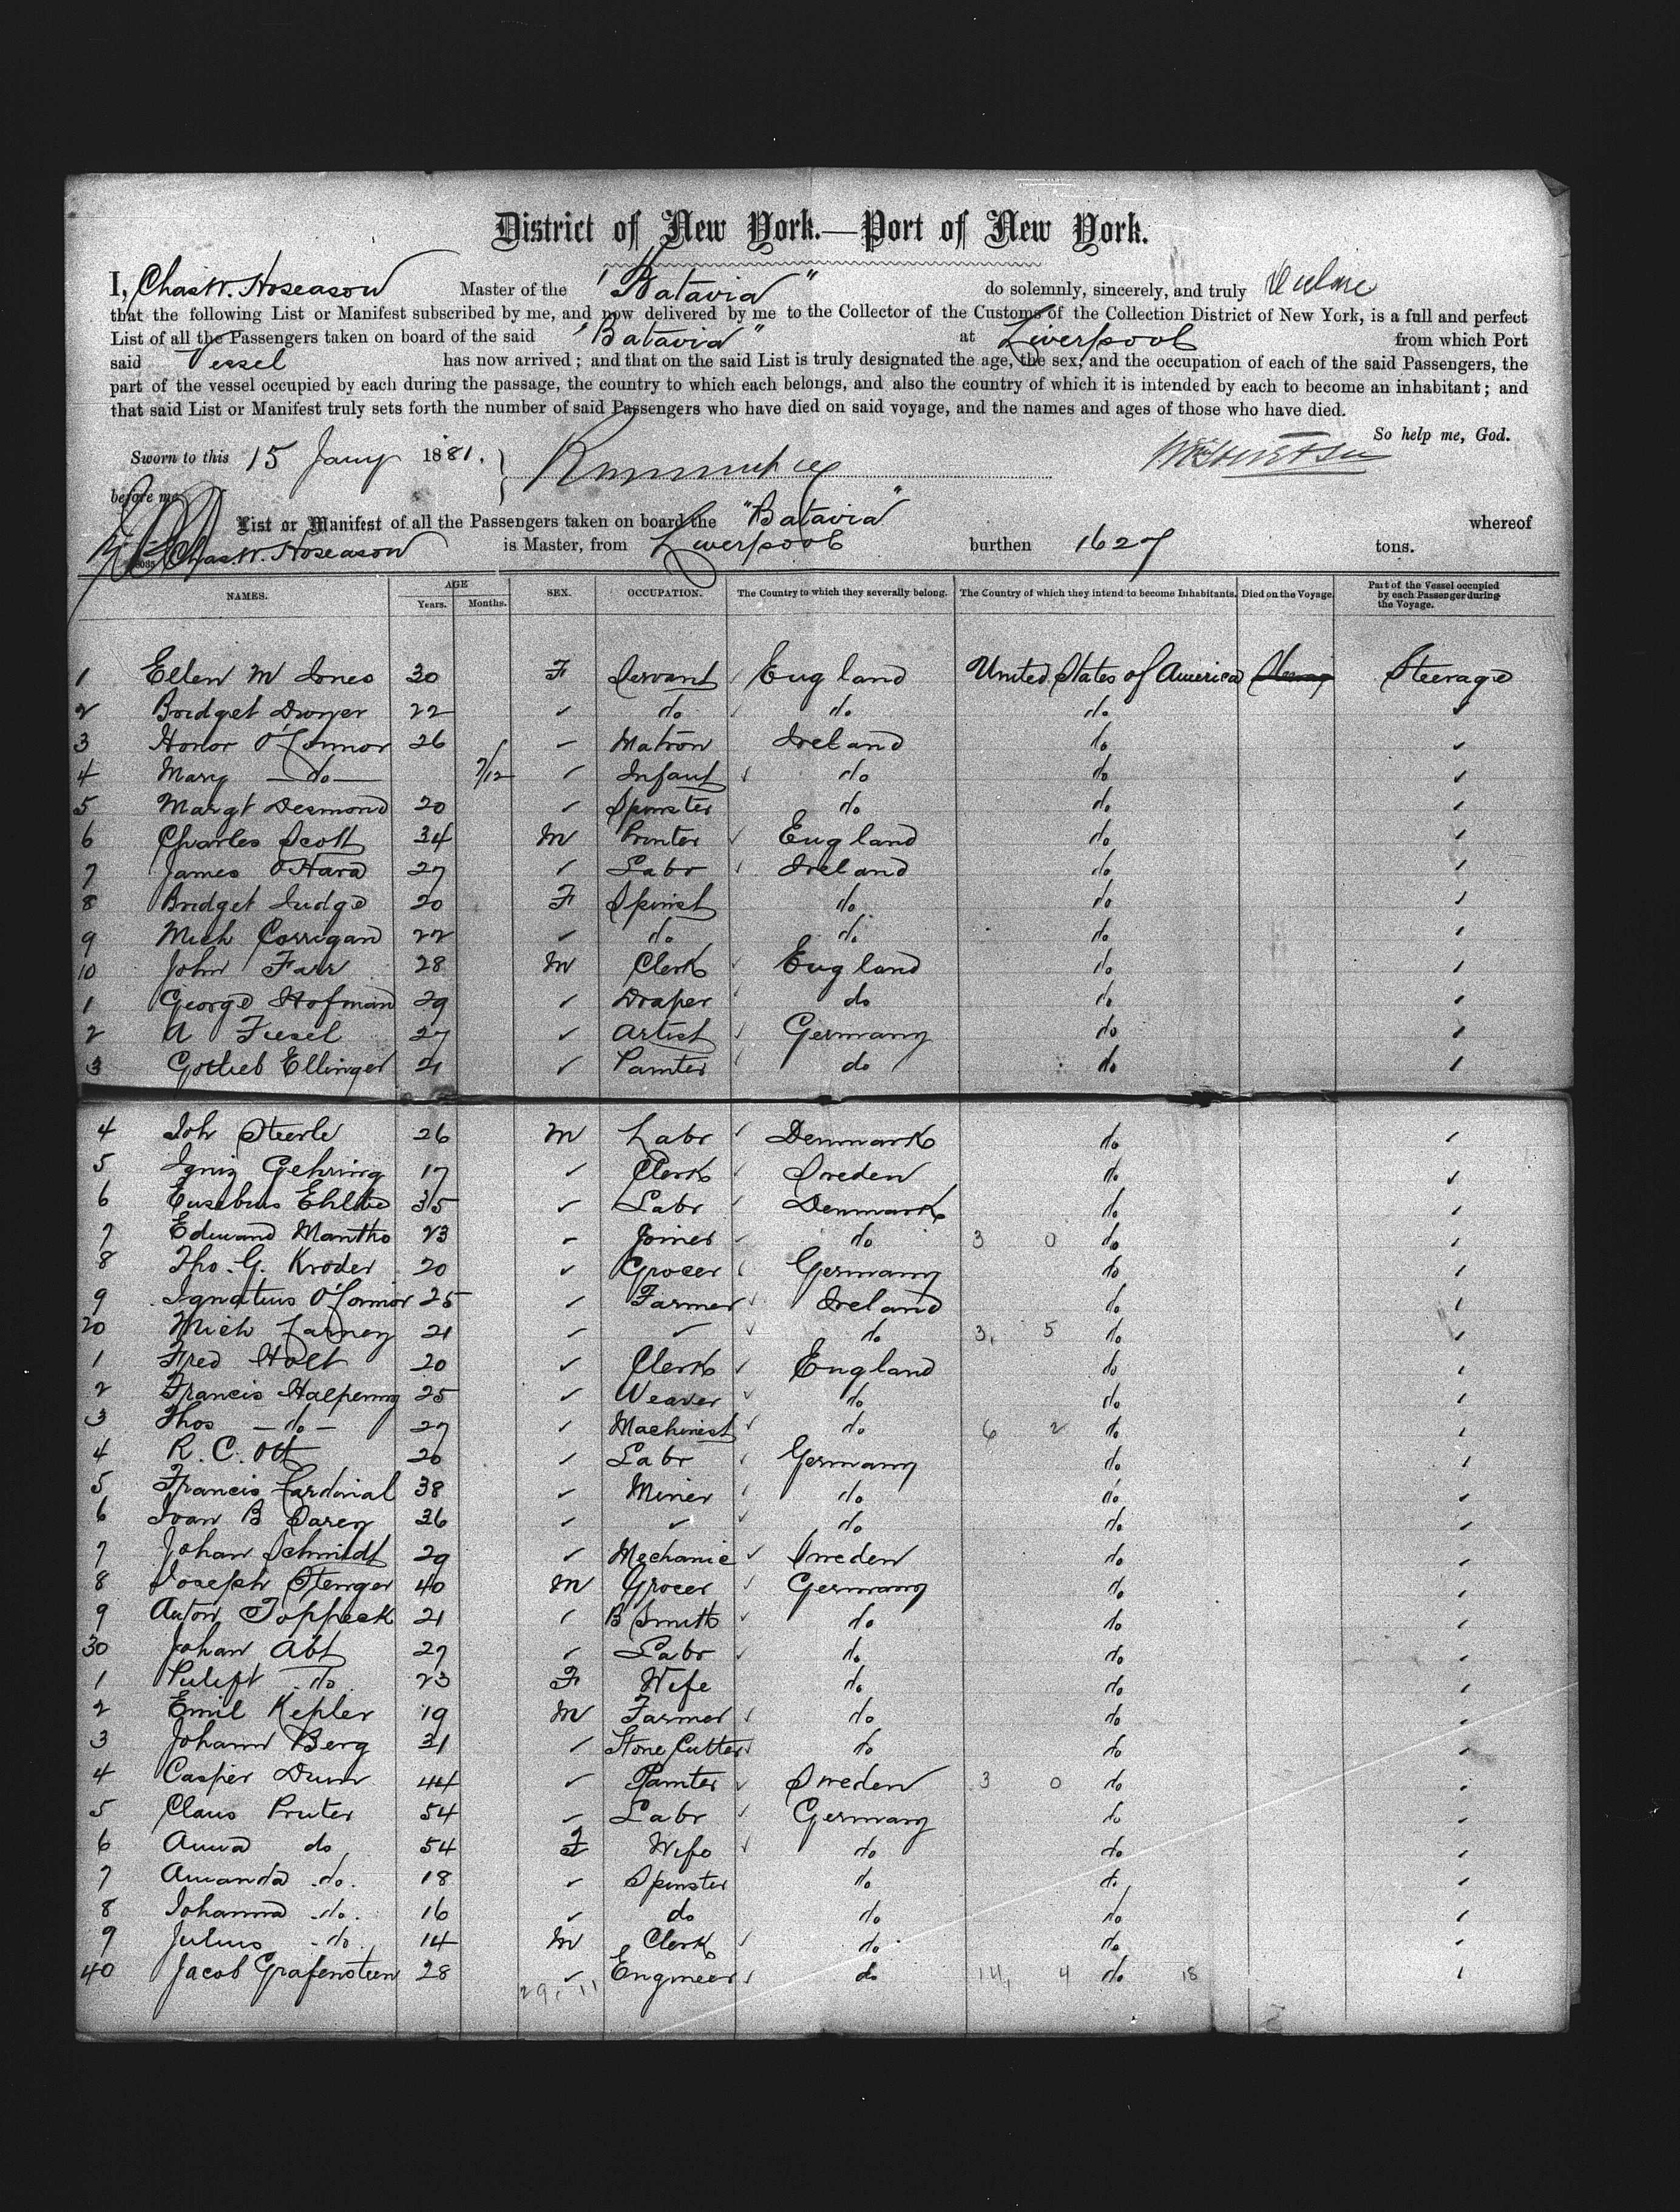 District of New York.—Port of New York.
I, Chas W. Hoseason Master of the "Batavia" do solemnly, sincerely, and truly
that the following List or Manifest subscribed by me, and now delivered by me to the Collector of the Customs of the Collection District of New York, is a full and perfect
List of all the Passengers taken on board of the said "Batavia" at Liverpool from which Port
said Vessel has now arrived; and that on the said List is truly designated the age, the sex, and the occupation of each of the said Passengers, the
part of the vessel occupied by each during the passage, the country to which each belongs, and also the country of which it is intended by each to become an inhabitant; and
that said List or Manifest truly sets forth the number of said Passengers who have died on said voyage, and the names and ages of those who have died.
So help me, God.
Sworn to this 15 Jany 1881.
before me
List or Manifest of all the Passengers taken on board the "Batavia" whereof
Chas. W. Hoseason is Master, from Liverpool burthen 1627 tons.
NAMES. AGE Years. Months. SEX. OCCUPATION. The Country to which they severally belong. The Country of which they intend to become Inhabitants. Died on the Voyage. Part of the Vessel occupied by each Passenger during the Voyage.
1 Ellen M Jones 30 F Servant England United States of America Steerage
2 Bridget Dwyer 22 ✓ do do do ✓
3 Honor O'Connor 26 ✓ Matron Ireland do ✓
4 Mary — do — 7/12 ✓ Infant do do ✓
5 Margt Desmond 20 ✓ Spinster do do ✓
6 Charles Scott 34 M Printer England do ✓
7 James O'Hara 27 ✓ Labr Ireland do ✓
8 Bridget Judge 20 F Spinst do do ✓
9 Mich Corrigan 22 ✓ do do do ✓
10 John Farr 28 M Clerk England do ✓
1 George Hofman 29 ✓ Draper do do ✓
2 A Fiesel 27 ✓ Artist Germany do ✓
3 Gottieb Ellinger 21 ✓ Painter do do ✓
4 Joh Steerle 26 M Labr Denmark do ✓
5 Igniz Gehring 17 ✓ Clerk Sweden do ✓
6 Eusebius 35 ✓ Labr Denmark do ✓
7 Edward Mantho 23 ✓ Joiner do 3 0 do ✓
8 Tho. G. Kroder 20 ✓ Grocer Germany do ✓
9 Ignatius O'Connor 25 ✓ Farmer Ireland do ✓
20 Mich Carney 21 ✓ ✓ do 3, 5 do ✓
1 Fred Holt 20 ✓ Clerk England do ✓
2 Francis Halpenny 25 ✓ Weaver do do ✓
3 Thos — do — 27 ✓ Machinist do 6 2 do ✓
4 R. C. Ott 20 ✓ Labr Germany do ✓
5 Francis Cardinal 38 ✓ Miner do do ✓
6 Ivan B 36 ✓ ✓ do do ✓
7 Johan Schmidt 29 ✓ Mechanic Sweden do ✓
8 Joseph Stenger 40 M Grocer Germany do ✓
9 Anton Toppeck 21 ✓ B Smith do do ✓
30 Johan Abt 27 ✓ Labr do do ✓
1 do 23 F Wife do do ✓
2 Emil Kepler 19 M Farmer do do ✓
3 Johann Berg 31 ✓ Stone Cutter do do ✓
4 Casper Dunr 44 ✓ Painter Sweden 3 0 do ✓
5 Claus Pruter 54 ✓ Labr Germany do ✓
6 Anna do 54 F Wife do do ✓
7 Amanda do. 18 ✓ Spinster do do ✓
8 Johanna do. 16 ✓ do do do ✓
9 Julius do. 14 M Clerk do do ✓
40 Jacob Grafensteen 28 ✓ Engineer do 14, 4 do 18 ✓
29, 11